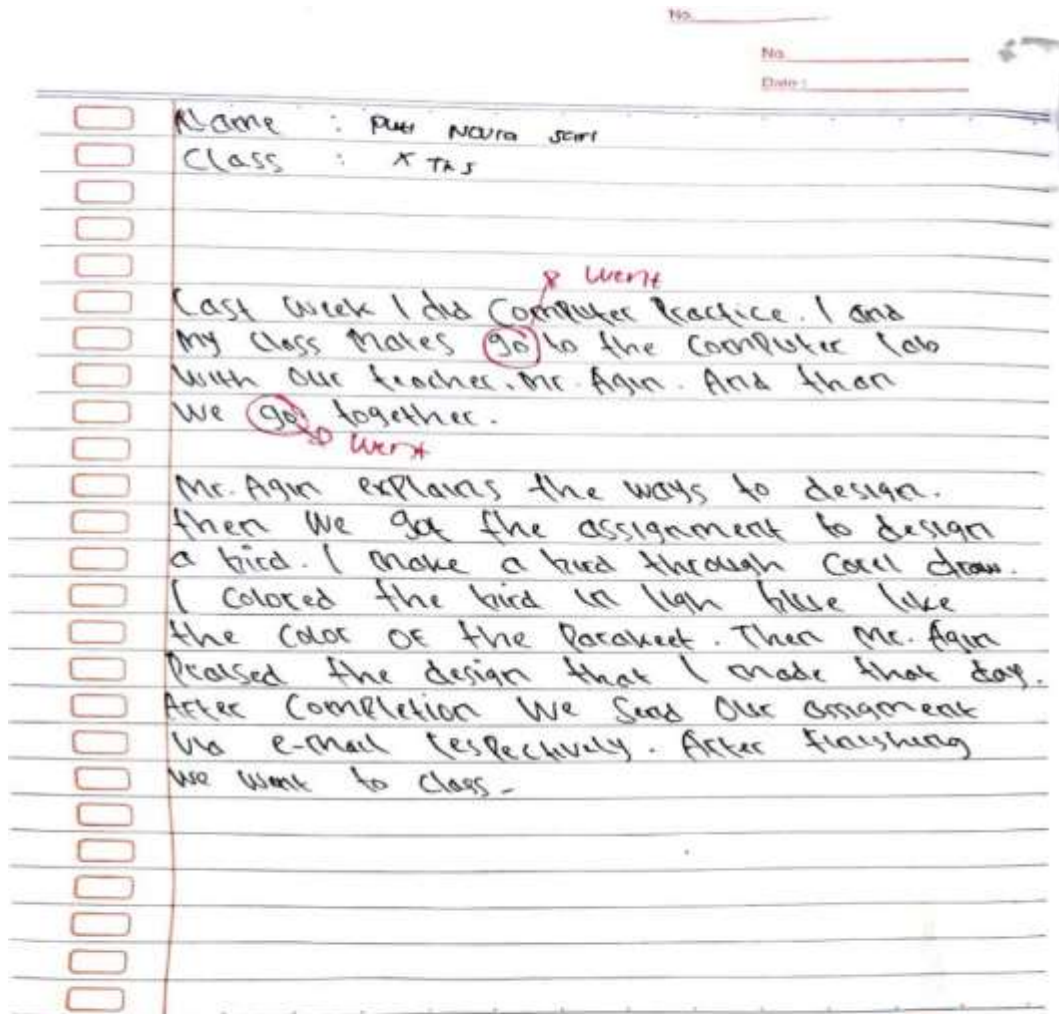 No.
No.
Date :
Name : Putri Noura Sari
Class : X TKJ
went
Last week I did Computer Practice. I and
my class mates go to the computer lab
with our teacher. Mr. Agin. And than
we go together.
went
Mr. Agin explains the ways to design.
then we got the assignment to design
a bird. I make a bird through Corel draw.
I colored the bird in ligh blue like
the color of the Parakeet. Then Mr. Agin
Praised the design that I made that day.
After Completion we Send Our assigment
via e-mail respectively. After finishing
we went to class.